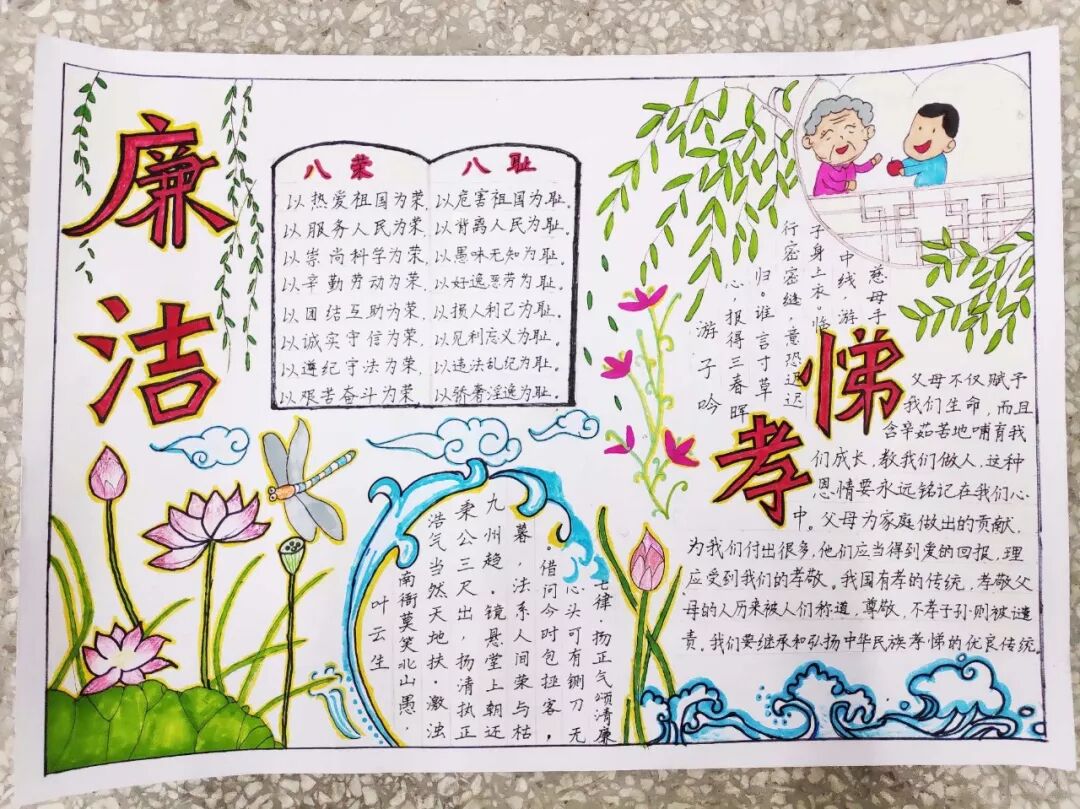 廉洁
八荣
八耻
以热爱祖国为荣。
以服务人民为荣。
以崇尚科学为荣。
以辛勤劳动为荣。
以团结互助为荣。
以诚实守信为荣。
以遵纪守法为荣。
以艰苦奋斗为荣。
以危害祖国为耻。
以背离人民为耻。
以愚昧无知为耻。
以好逸恶劳为耻。
以损人利己为耻。
以见利忘义为耻。
以违法乱纪为耻。
以骄奢淫逸为耻。
游子吟
慈母手
中线，游
子身上衣。临
行密密缝，意恐迟迟
归。谁言寸草
心，报得三春晖
孝悌
父母不仅赋予
我们生命，而且
含辛茹苦地哺育我
们成长，教我们做人，这种
恩情要永远铭记在我们心
中。父母为家庭做出的贡献，
为我们付出很多，他们应当得到爱的回报，理
应受到我们的孝敬。我国有孝的传统，孝敬父
母的人历来被人们称道，尊敬，不孝子孙则被谴
责。我们要继承和弘扬中华民族孝悌的优良传统。
七律·扬正气颂清廉
叶云生
南衙莫笑北山愚，
浩气当然天地扶。激浊
秉公三尺出，扬清执正
九州趋。镜悬堂上朝还
暮，法系人间荣与枯
。借问今时包拯客，
心头可有铡刀无